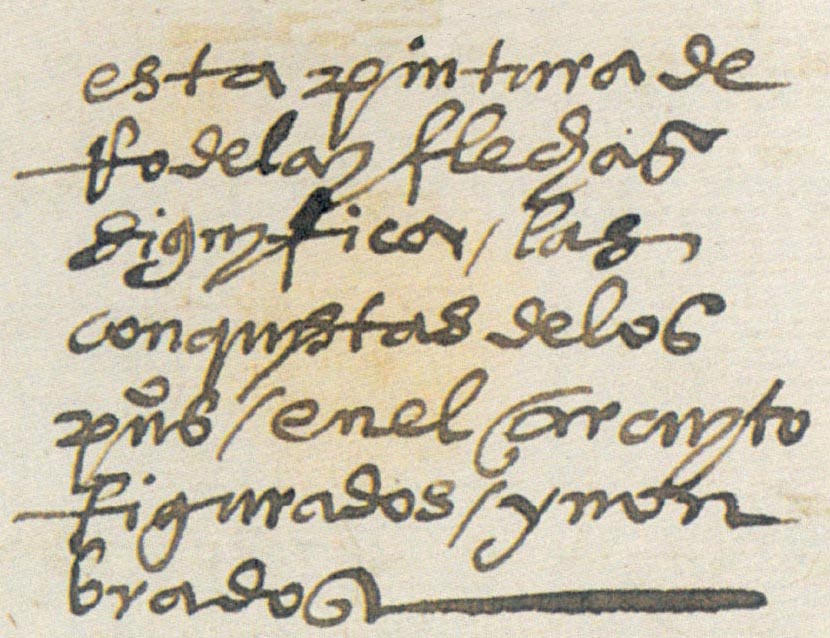 esta pintura de
rodelay flechas
significa / las
conquystas delos
puºs / enel çircuyto
figurados / ynon
brados